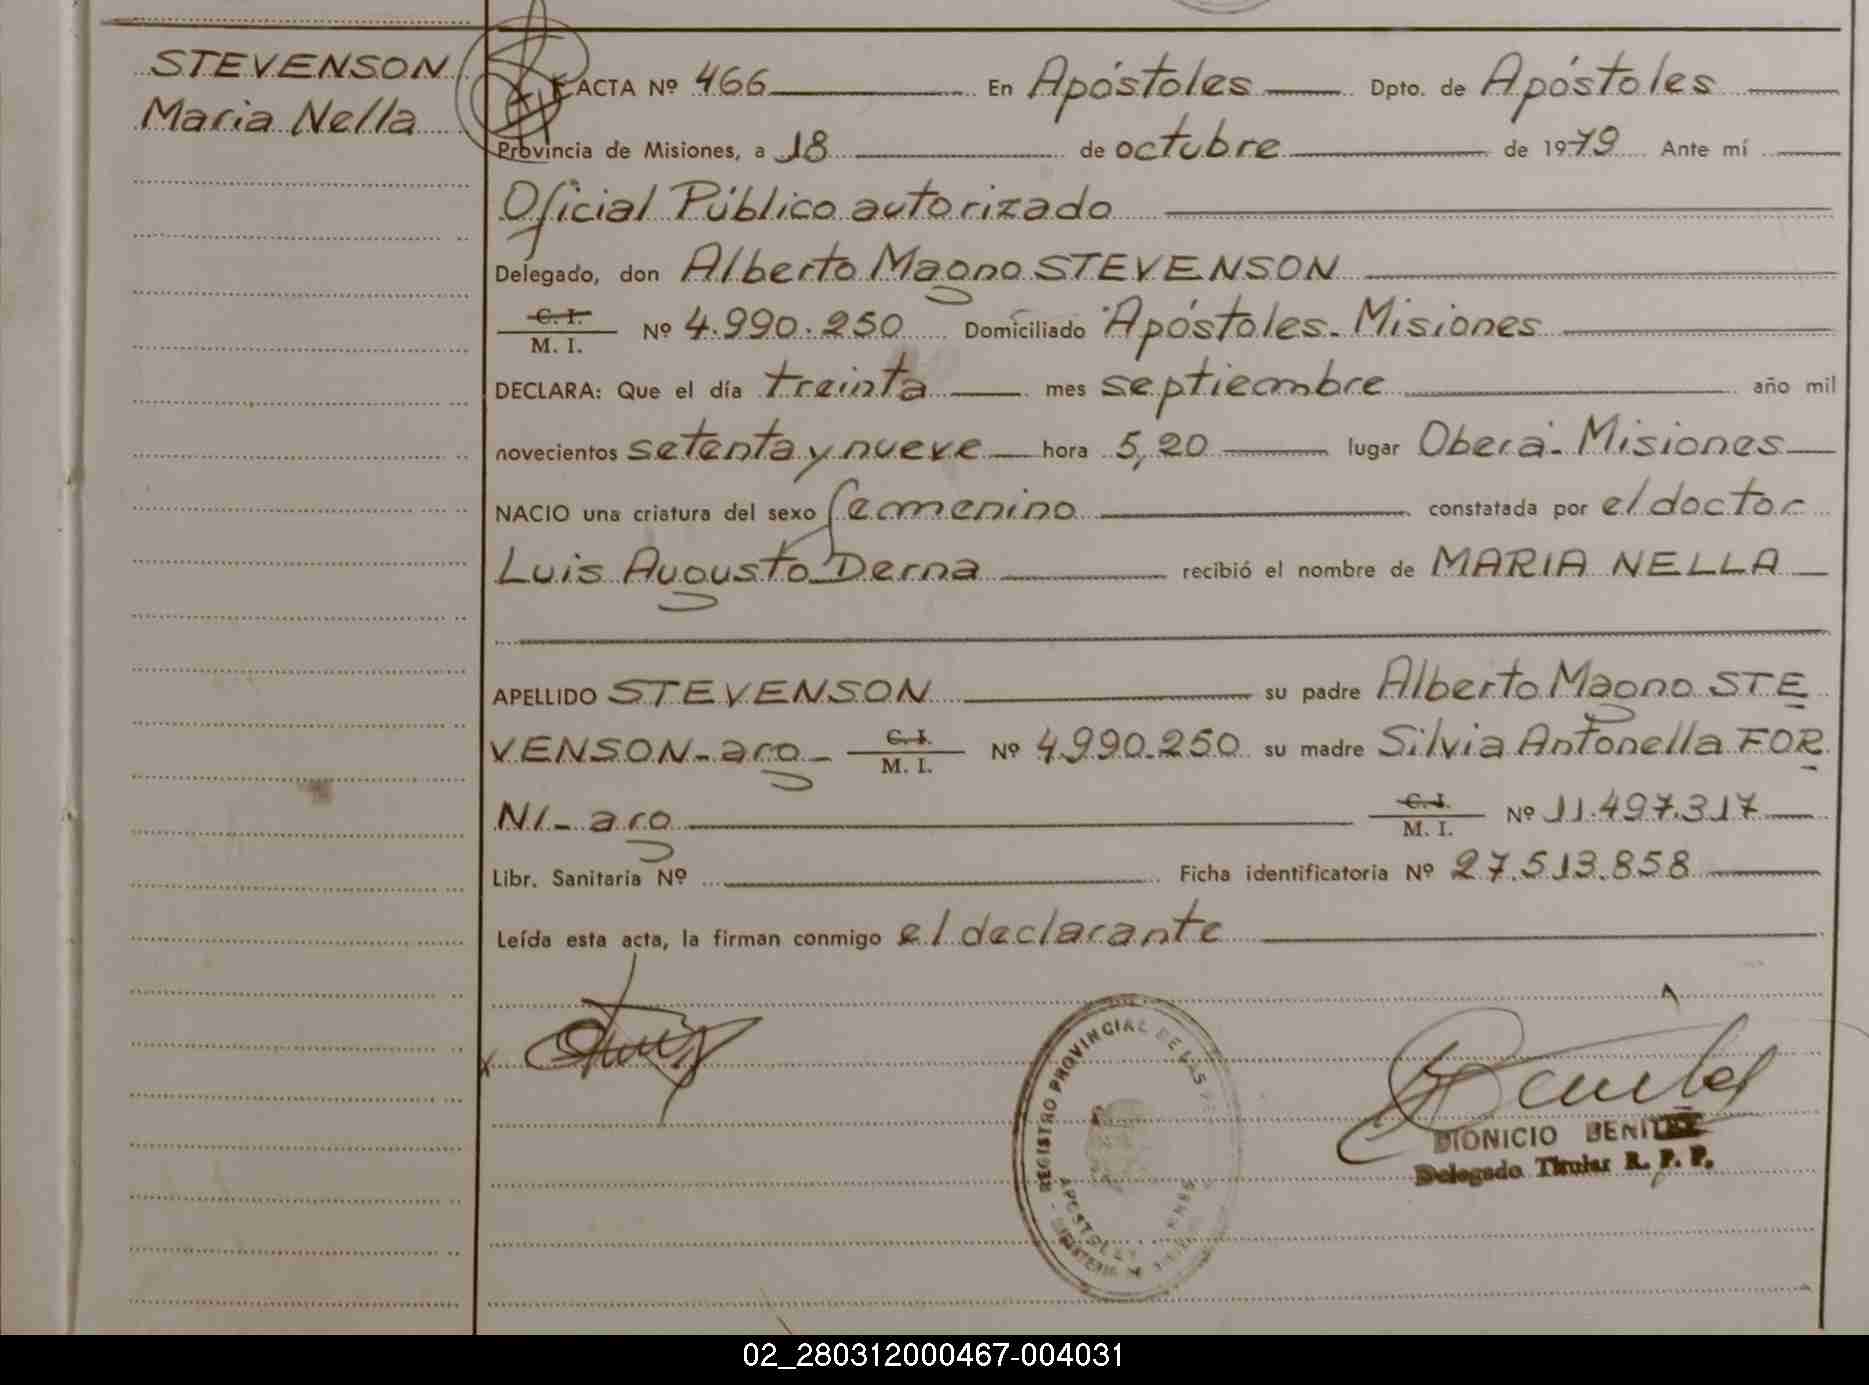 STEVENSON
Maria Nella
ACTA Nº 466 En Apóstoles Dpto. de Apóstoles
Provincia de Misiones, a 18 de octubre de 1979 Ante mí
Oficial Público autorizado
Delegado, don Alberto Magno STEVENSON
C. I.
M. I. Nº 4.990.250 Domiciliado Apóstoles - Misiones
DECLARA: Que el día treinta mes septiembre año mil
novecientos setenta y nueve hora 5,20 lugar Oberá - Misiones
NACIO una criatura del sexo femenino constatada por el doctor
Luis Augusto Derna recibió el nombre de MARIA NELLA
APELLIDO STEVENSON su padre Alberto Magno STE
VENSON - arg - C. I. M. I. Nº 4.990.250 su madre Silvia Antonella FOR
NI - arg C. I. M. I. Nº 11.497.317
Libr. Sanitaria Nº Ficha identificatoria Nº 27.513.858
Leída esta acta, la firman conmigo el declarante
REGISTRO PROVINCIAL DE LAS
APOSTOLES
DIONICIO BENITEZ
Delegado Titular R. P. P.
02_280312000467-004031